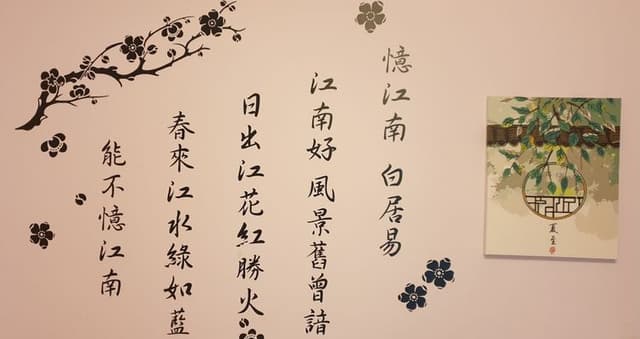 憶江南 白居易
江南好 風景舊曾諳
日出江花紅勝火
春來江水綠如藍
能不憶江南
夏至